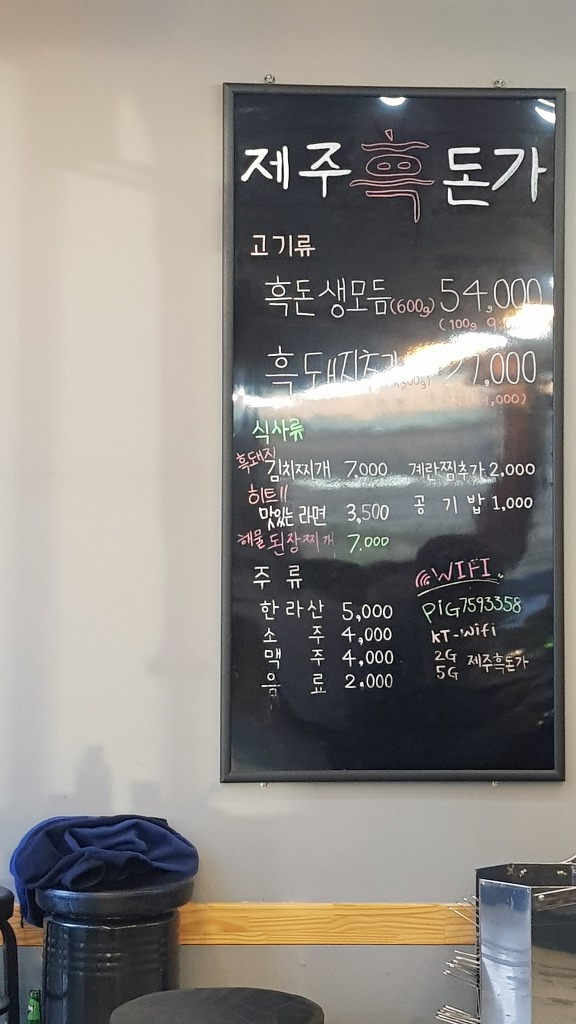 제주흑돈가
고기류
흑돈생모듬(600g) 54,000
(100g
흑돼지추가 27,000
식사류
흑돼지 김치찌개 7,000 계란찜추가 2,000
히트!! 맛있는 라면 3,500 공 기 밥 1,000
해물 된장찌개 7.000
주 류 WIFI
한라산 5,000 PIG7593358
소 주 4,000 KT-Wifi
맥 주 4,000 2G 제주흑돈가
음 료 2.000 5G